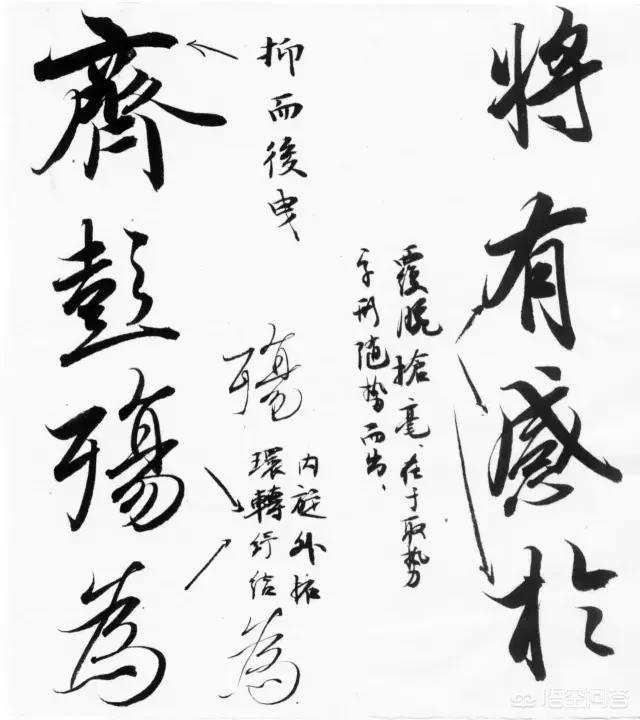 將有感於
覆腕搶毫、在于取勢
字形随势而出,
抑而後曳、
内外拓
環轉紆结
殤
為
齊彭殤為
悟空问答